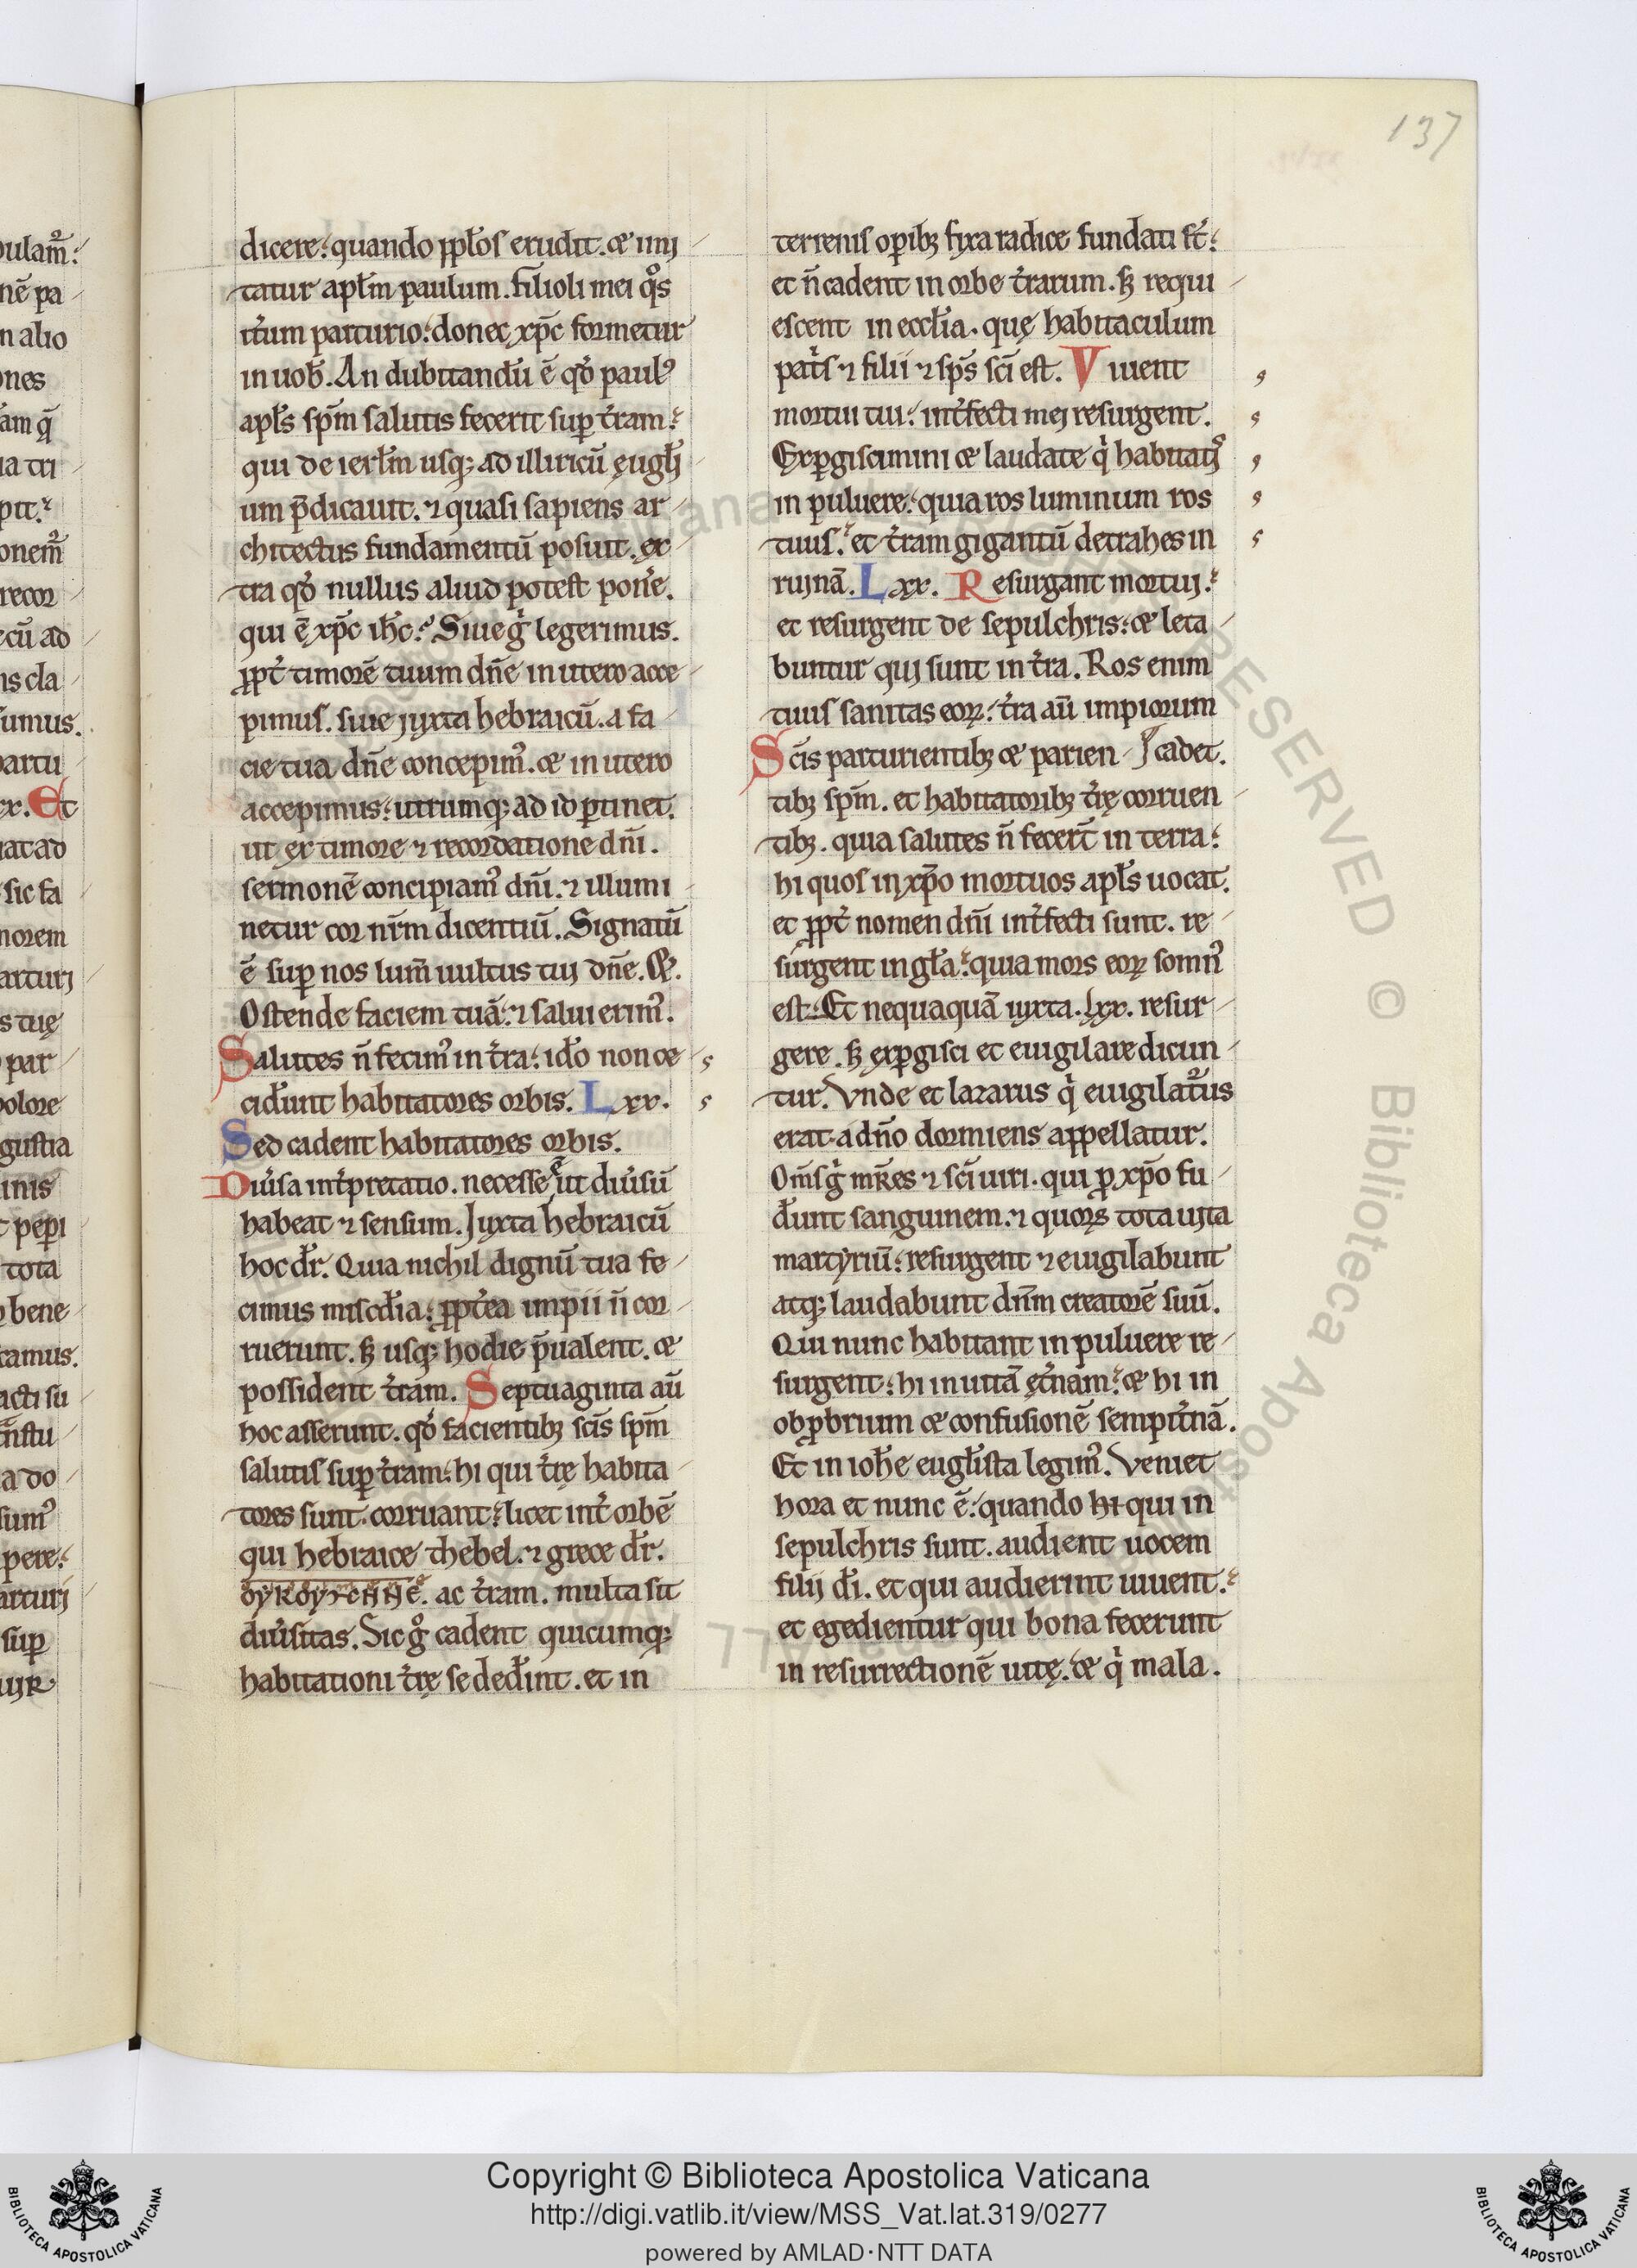 137
dicere: quando ppl̄os erudit. & imi
tatur apl̄m paulum. Filioli mei q̊s
it̾um parturio: donec xp̄c formetur
in uob̄. An dubitandū ē qđ paul⁹
apl̄s sp̄m salutis fecerit sup t̾ram:
qui de ierl̄m usq; ad illiricū ęugl̄i
um p̄dicauit. ⁊ quasi sapiens ar
chitectus fundamentū posuit. ex
tra qđ nullus aliud potest pon̾e.
qui ē xp̄c ih̄c. Siue g̾ legerimus.
ppt̾ timorē tuum dn̄e in utero acce
pimus. siue iuxta hebraicū. a fa
cie tua dn̄e concepim⁹. & in utero
accepimus: utrumq; ad id p̱tinet.
ut ex timore ⁊ recordatione dn̄i.
sermonē concipiam⁹ dn̄i. ⁊ illumi
netur cor nr̄m dicentiū. Signatū
ē sup nos lum̄ uultus tui dn̄e. &.
Ostende faciem tuā: ⁊ salui erim⁹.
Salutes n̄ fecim⁹ in t̾ra: iđo non ce
cid̾unt habitatores orbis. Lxx.
Sed cadent habitatores orbis.
Diu̾sa int̾pretatio. necesse ē ut diu̾sū
habeat ⁊ sensum. Iuxta hebraicū
hoc dr̄. Quia nichil dignū tua fe
cimus misc̄dia: ppt̾ea impii n̄ cor
ruerunt. sꝫ usq; hodie p̄ualent. &
possident t̾ram. Septuaginta aū
hoc asserunt. qđ facientibꝫ sc̄is sp̄m
salutis sup t̾ram: hi qui t̾rę habita
tores sunt. corruant: licet int̾ orbē
qui hebraice thebel. ⁊ grece dr̄.
ac t̾ram. multa sit
diu̾sitas. Sic g̊ cadent quicumq;
habitationi t̾rę se ded̾int. et in
terrenis op̱ibꝫ fixa radice fundati st̄:
et n̄ cadent in orbe t̾rarum. sꝫ requi
escent in eccl̄ia. quę habitaculum
pat̾s ⁊ filii ⁊ sp̄s sc̄i est. Viuent
mortui tui: int̾fecti mei resurgent.
Exp̱giscimini & laudate q̾ habitatis
in puluere: quia ros luminum ros
tuus: et t̾ram gigantū detrahes in
ruinā. Lxx. Resurgant mortui:
et resurgent de sepulchris: & leta
buntur qui sunt in t̾ra. Ros enim
tuis sanitas eoꝝ: t̾ra aū impiorum
cadet.
Sc̄is parturientibꝫ & parien
tibꝫ sp̄m. et habitatoribꝫ t̾rę corruen
tibꝫ. quia salutes n̄ fecert̄ in terra:
hi quos in xp̄o mortuos apl̄s uocat.
et ppt̾ nomen dn̄i int̾fecti sunt. re
surgent in gl̄a: quia mors eoꝝ somn⁹
est: Et nequaquā iuxta. lxx. resur
gere. sꝫ exp̱gisci et euigilare dicun
tur. Vnde et lazarus q̾ euigilaturus
erat a dn̄o dormiens appellatur.
Om̄s g̾ mr̄es ⁊ sc̄i uiri. qui p̱ xp̄o fu
d̾unt sanguinem. ⁊ quoꝝ tota uita
martyriū: resurgent ⁊ euigilabunt
atq; laudabunt dn̄m creatorē suū.
Qui nunc habitant in puluere re
surgent: hi in uitā ęt̾nam: & hi in
obp̱brium & confusionē sempit̾nā.
Et in ioh̄e eugl̄ista legim⁹. Veniet
hora et nunc ē: quando hi qui in
sepulchris sunt. audient uocem
filii dī. et qui audierint uiuent:
et egedientur qui bona fecerunt
in resurrectionē uitę. & q̾ mala.
Copyright © Biblioteca Apostolica Vaticana
http://digi.vatlib.it/view/MSS_Vat.lat.319/0277
powered by AMLAD·NTT DATA
BIBLIOTECA APOSTOLICA VATICANA
BIBLIOTECA APOSTOLICA VATICANA